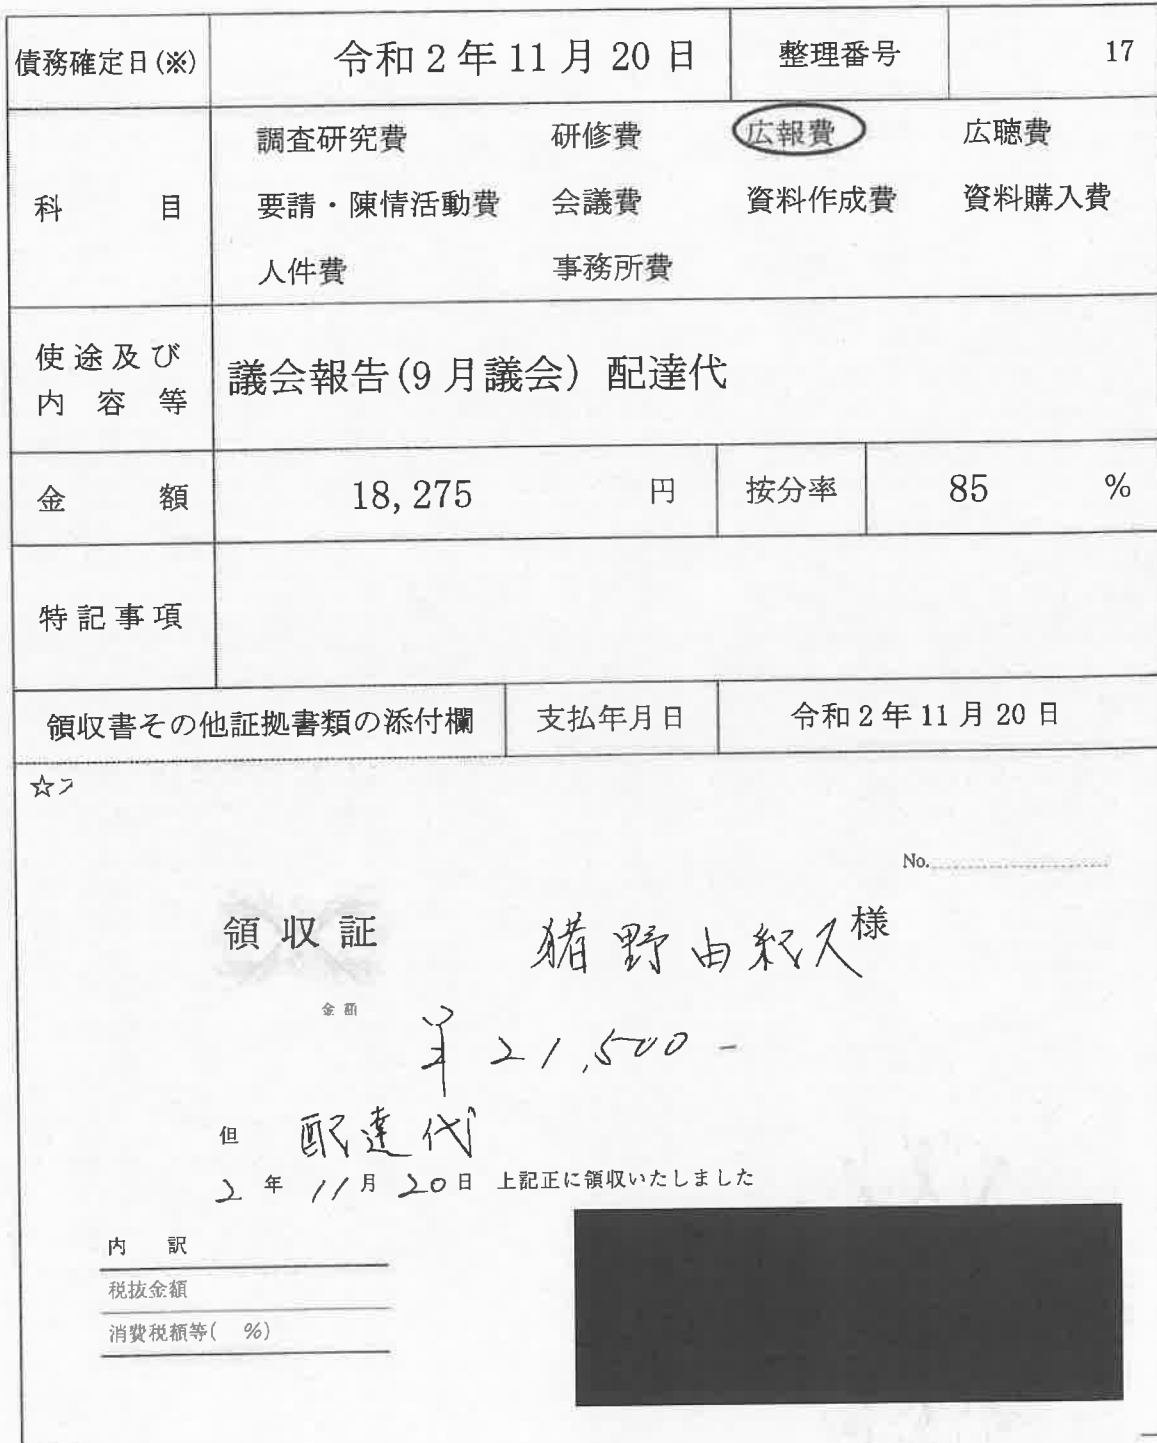 債務確定日(※) 令和2年11月20日 整理番号 17
科目 調査研究費 研修費 広報費 広聴費
要請・陳情活動費 会議費 資料作成費 資料購入費
人件費 事務所費
使途及び
内容等
議会報告(9月議会) 配達代
金額 18,275 円 按分率 85 %
特記事項
領収書その他証拠書類の添付欄 支払年月日 令和2年11月20日
☆
No.
領収証 猪野由紀久様
金額
¥21,500-
但 配達代
2年11月20日 上記正に領収いたしました
内訳
税抜金額
消費税額等( %)